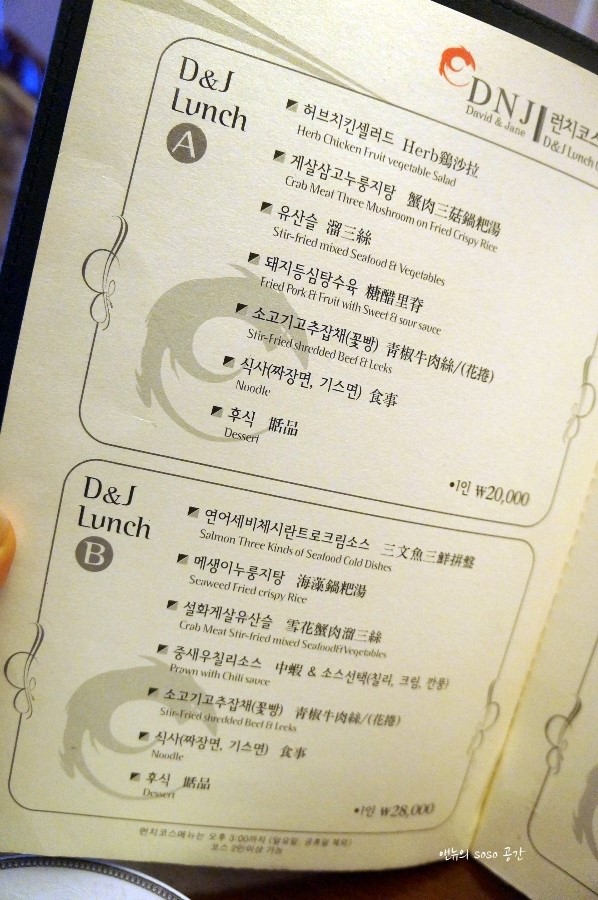 DNJ
David & Jane
런치코스
D&J Lunch
D&J
Lunch
A
허브치킨셀러드 Herb鷄沙拉
Herb Chicken Fruit vegetable Salad
게살삼고누룽지탕 蟹肉三菇鍋粑湯
Crab Meat Three Mushroom on Fried Crispy Rice
유산슬 溜三絲
Stir-fried mixed Seafood & Vegetables
돼지등심탕수육 糖醋里脊
Fried Pork & Fruit with Sweet & sour sauce
소고기고추잡채(꽃빵) 靑椒牛肉絲/(花捲)
Stir-Fried shredded Beef & Leeks
식사(짜장면, 기스면) 食事
Noodle
후식 甛品
Dessert
•1인 ₩20,000
D&J
Lunch
B
연어세비체시란트로크림소스 三文魚三鮮拼盤
Salmon Three Kinds of Seafood Cold Dishes
메생이누룽지탕 海藻鍋粑湯
Seaweed Fried crispy Rice
설화게살유산슬 雪花蟹肉溜三絲
Crab Meat Stir-fried mixed Seafood&Vegetables
중새우칠리소스 中蝦 & 소스선택(칠리, 크림, 깐풍)
Prawn with Chili sauce
소고기고추잡채(꽃빵) 靑椒牛肉絲/(花捲)
Stir-Fried shredded Beef & Leeks
식사(짜장면, 기스면) 食事
Noodle
후식 甛品
Dessert
•1인 ₩28,000
런치코스메뉴는 오후 3:00까지 (일요일, 공휴일 제외)
코스 2인이상 가능
앤뉴의 soso 공간